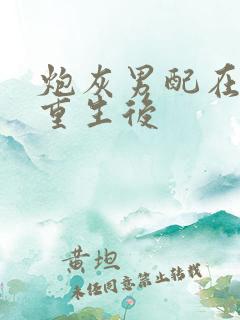 炮灰男配在
重生後
黄坦
未经同意禁止转载